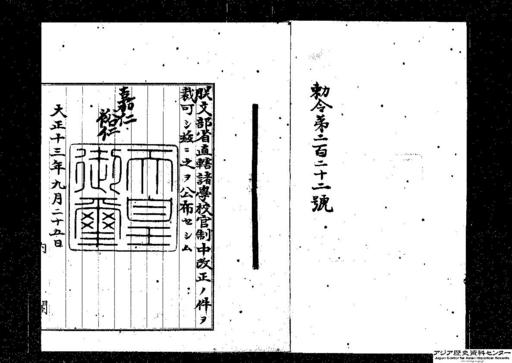 勅令第二百二十二號
朕文部省直轄諸學校官制中改正ノ件ヲ
裁可シ玆ニ之ヲ公布セシム
嘉仁
裕仁
天皇御璽
大正十三年九月二十五日
内閣
アジア歴史資料センター
Japan Center for Asian Historical Records